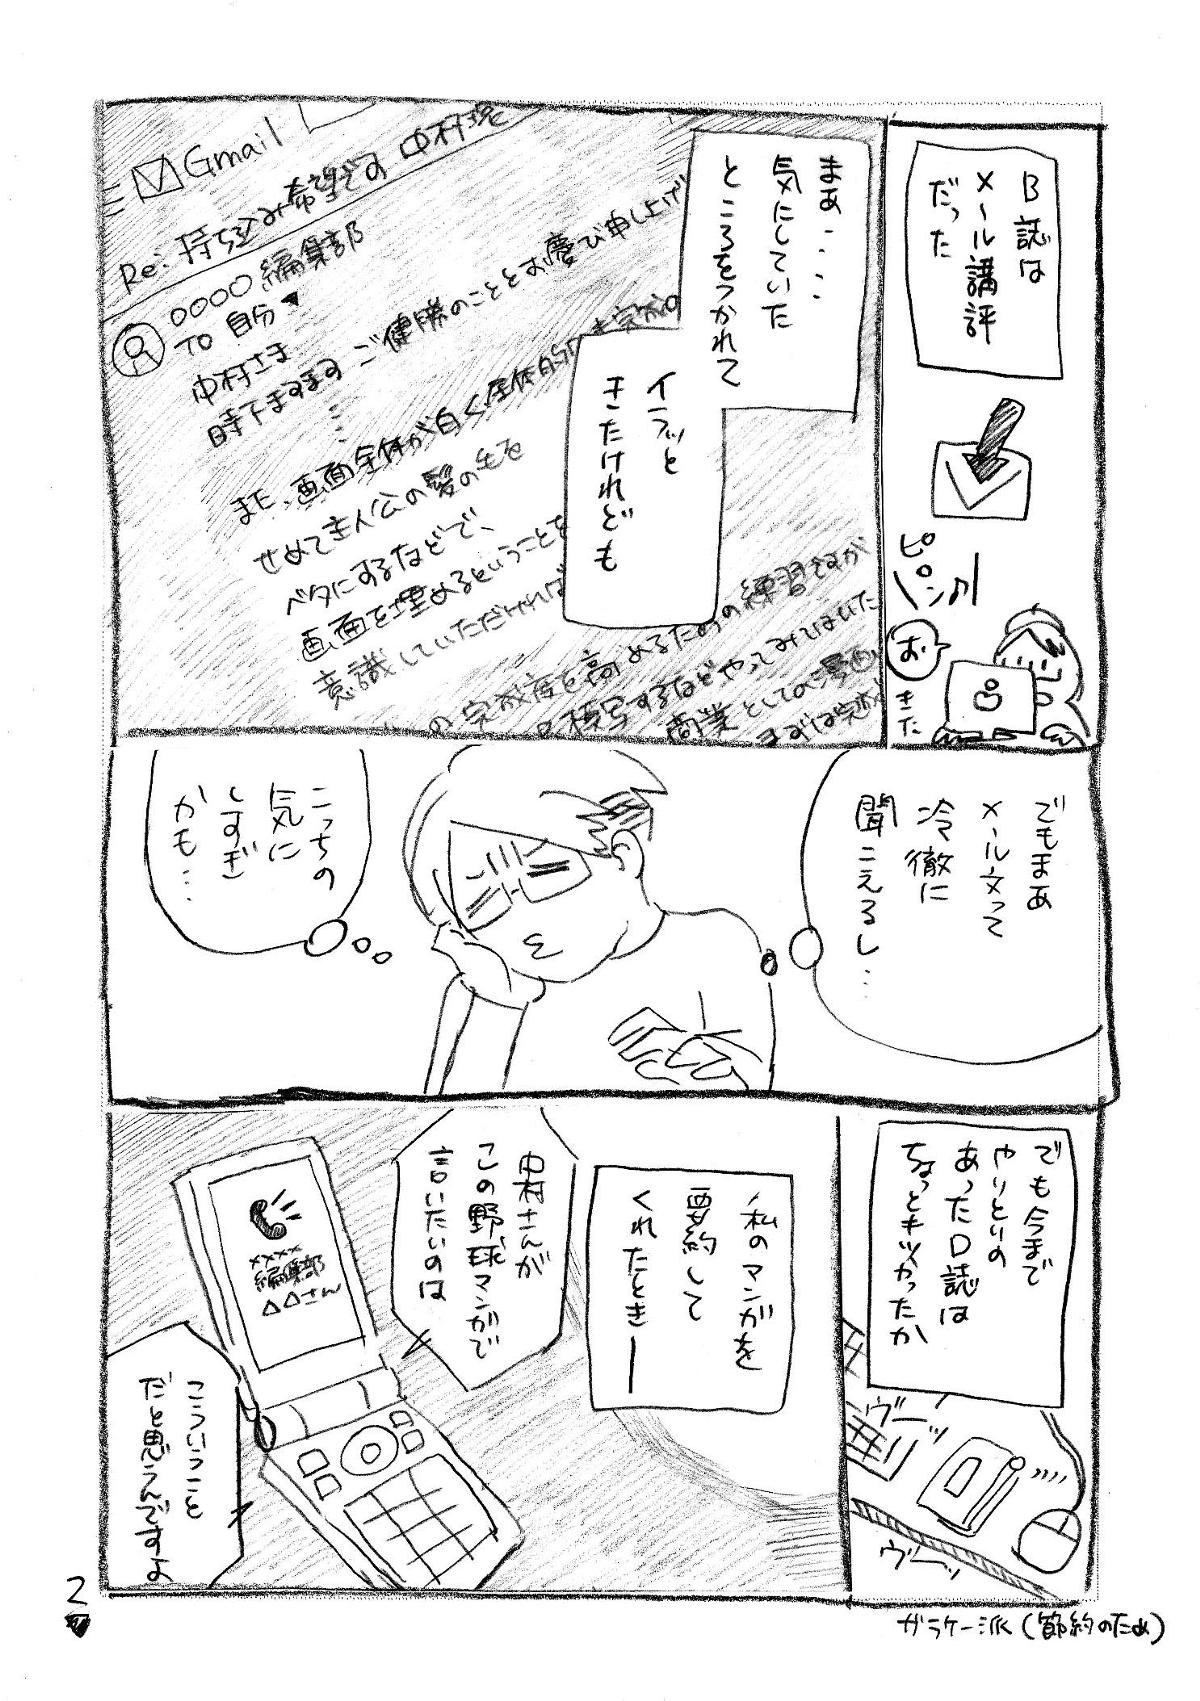 B誌は
メール講評
だった
ピ
ピン♪
お
きた
まぁ・・・・
気にしていた
ところをつかれて
イラッと
きたけれども
Gmail
Re:持ち込み希望です 中村
〇〇〇〇編集部
TO 自分▼
中村さま
時下ますます ご健勝のこととお慶び申し上げ
また、画面全体が白く、全体的に
せめて主人公の髪の毛を
ベタにするなどで、
画面を埋めるということを
意識していただければ
の完成度を高めるための練習ですが
模写するなどやってみてはいた
商業としての漫画
まずは完成
でもまあ
メール文って
冷徹に
聞こえるし…
こっちの
気に
しすぎ
かも…
でも今まで
やりとりの
あったD誌は
ちょっとキツかったか
ヴーッ
ヴーッ
私のマンガを
要約して
くれたときー
中村さんが
この野球マンガで
言いたいのは
××××
編集部
△△さん
こういうこと
だと思うんですよ
2
ガラケー派(節約のため)